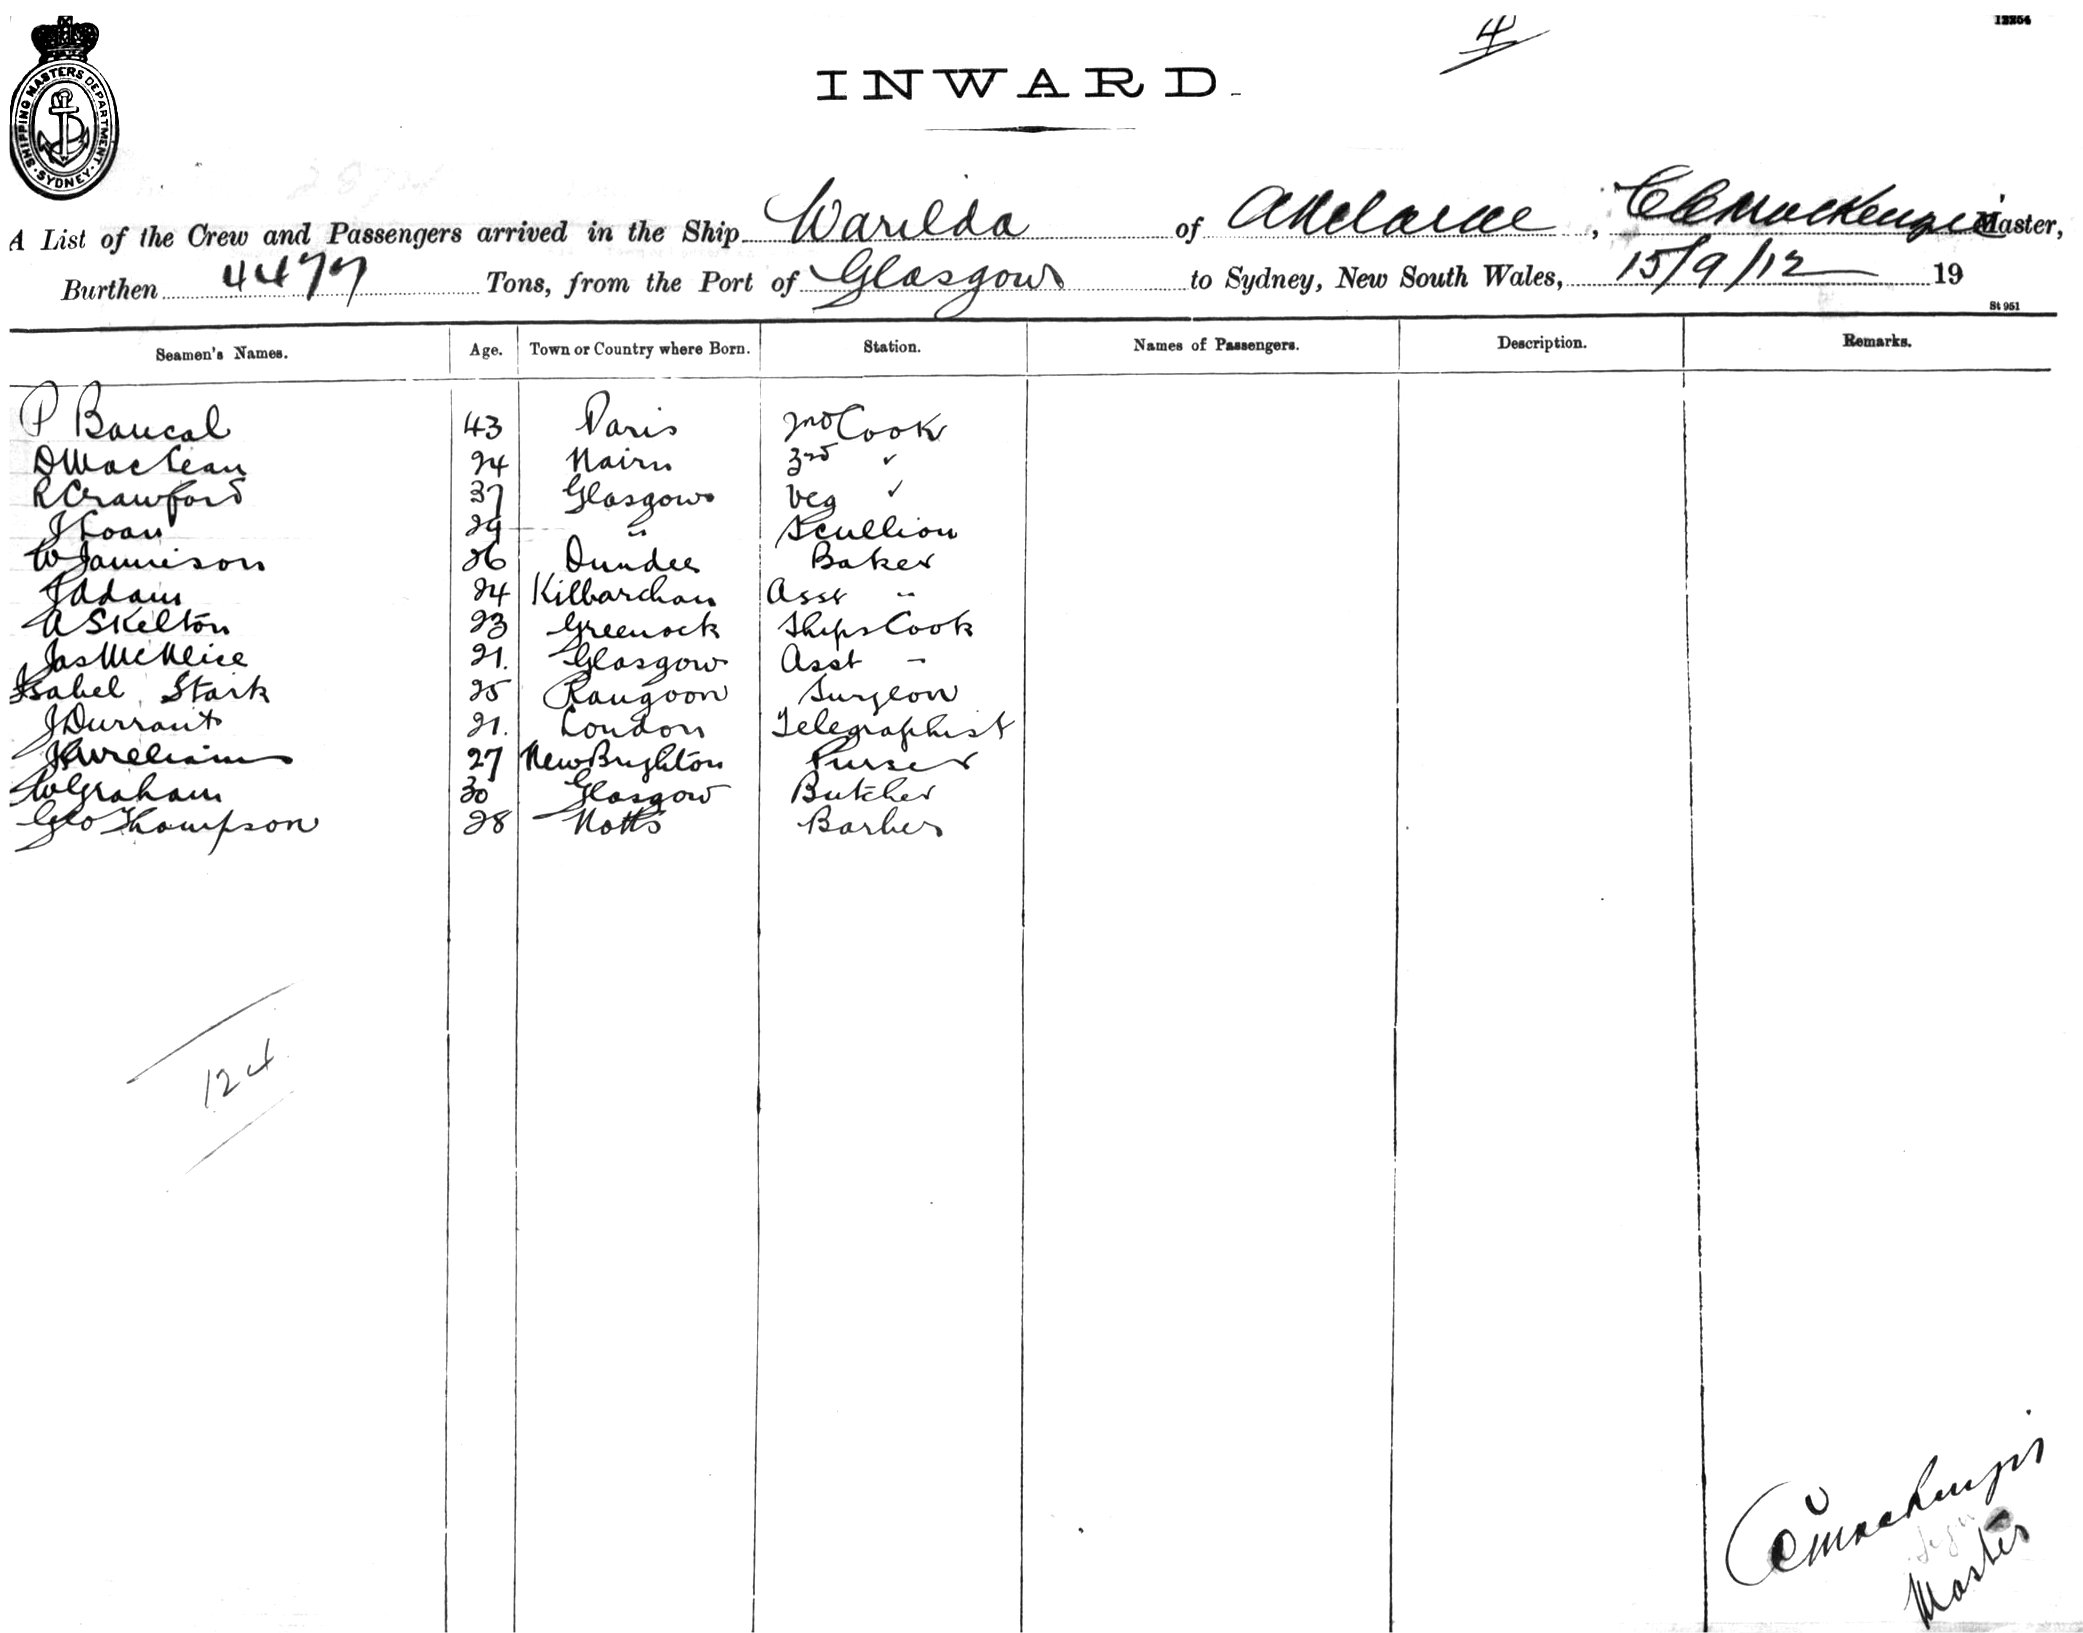 12254
4
SHIPPING MASTERS DEPARTMENT · SYDNEY ·
INWARD.
A List of the Crew and Passengers arrived in the Ship Warilda of Adelaide, C C MacKenzie Master,
Burthen 4477 Tons, from the Port of Glasgow to Sydney, New South Wales, 15/9/12 19
St 951
Seamen's Names. Age. Town or Country where Born. Station. Names of Passengers. Description. Remarks.
P Baucal 43 Paris 2nd Cook
D MacLean 24 Nairn 3rd "
R Crawford 37 Glasgow Veg "
J Loan 29 " Scullion
W Jamieson 26 Dundee Baker
J Adam 24 Kilbarchan Asst "
A Skelton 23 Greenock Ships Cook
Jas McNeice 21. Glasgow Asst "
Isabel Stark 25 Rangoon Surgeon
J Durrant 21. London Telegraphist
Williams 27 New Brighton Purser
W Graham 30 Glasgow Butcher
Geo Thompson 28 Notts Barber
124
C C MacKenzie
Master